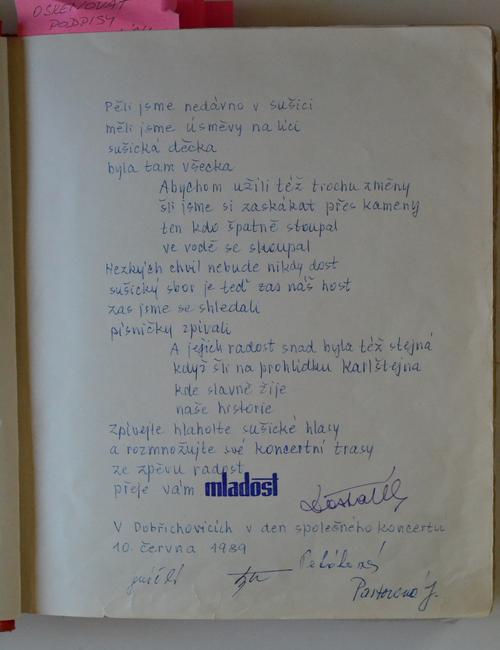 OSKENOVAT
PODPISY
Pěli jsme nedávno v sušici
měli jsme úsměvy na líci
sušická děcka
byla tam všecka
Abychom užili též trochu změny
šli jsme si zaskákat přes kameny
ten kdo špatně stoupal
ve vodě se skoupal
Hezkých chvil nebude nikdy dost
sušický sbor je teď zas náš host
zas jsme se shledali
písničky zpívali
A jejich radost snad byla též stejná
když šli na prohlídku Karlštejna
kde slavně žije
naše historie
Zpívejte hlaholte sušické hlasy
a rozmnožujte své koncertní trasy
ze zpěvu radost
přeje vám mladost
V Dobřichovicích v den společného koncertu
10. června 1989